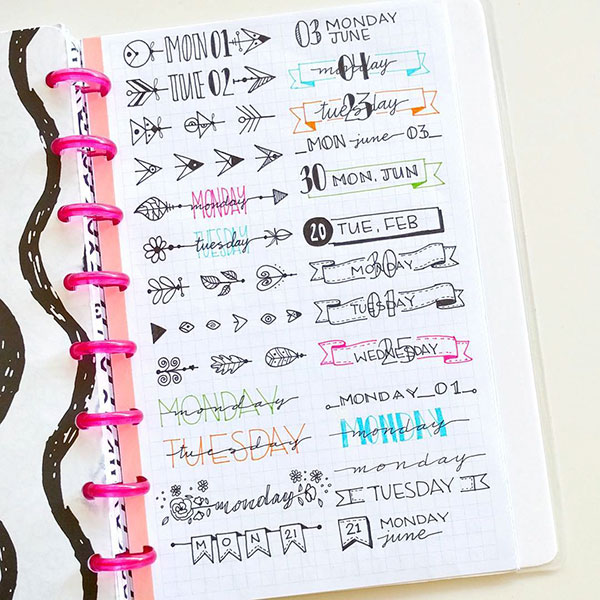 MON 01
TUE 02
MONDAY monday
TUESDAY tuesday
MONDAY monday
TUESDAY tuesday
monday
MON 21
03 MONDAY
JUNE
04 monday
23 tuesday
MON june 03
30 MON, JUN
20 TUE, FEB
30 MONDAY
01 TUESDAY
25 WEDNESDAY
MONDAY_01
MONDAY monday
monday
TUESDAY
21 MONDAY
june